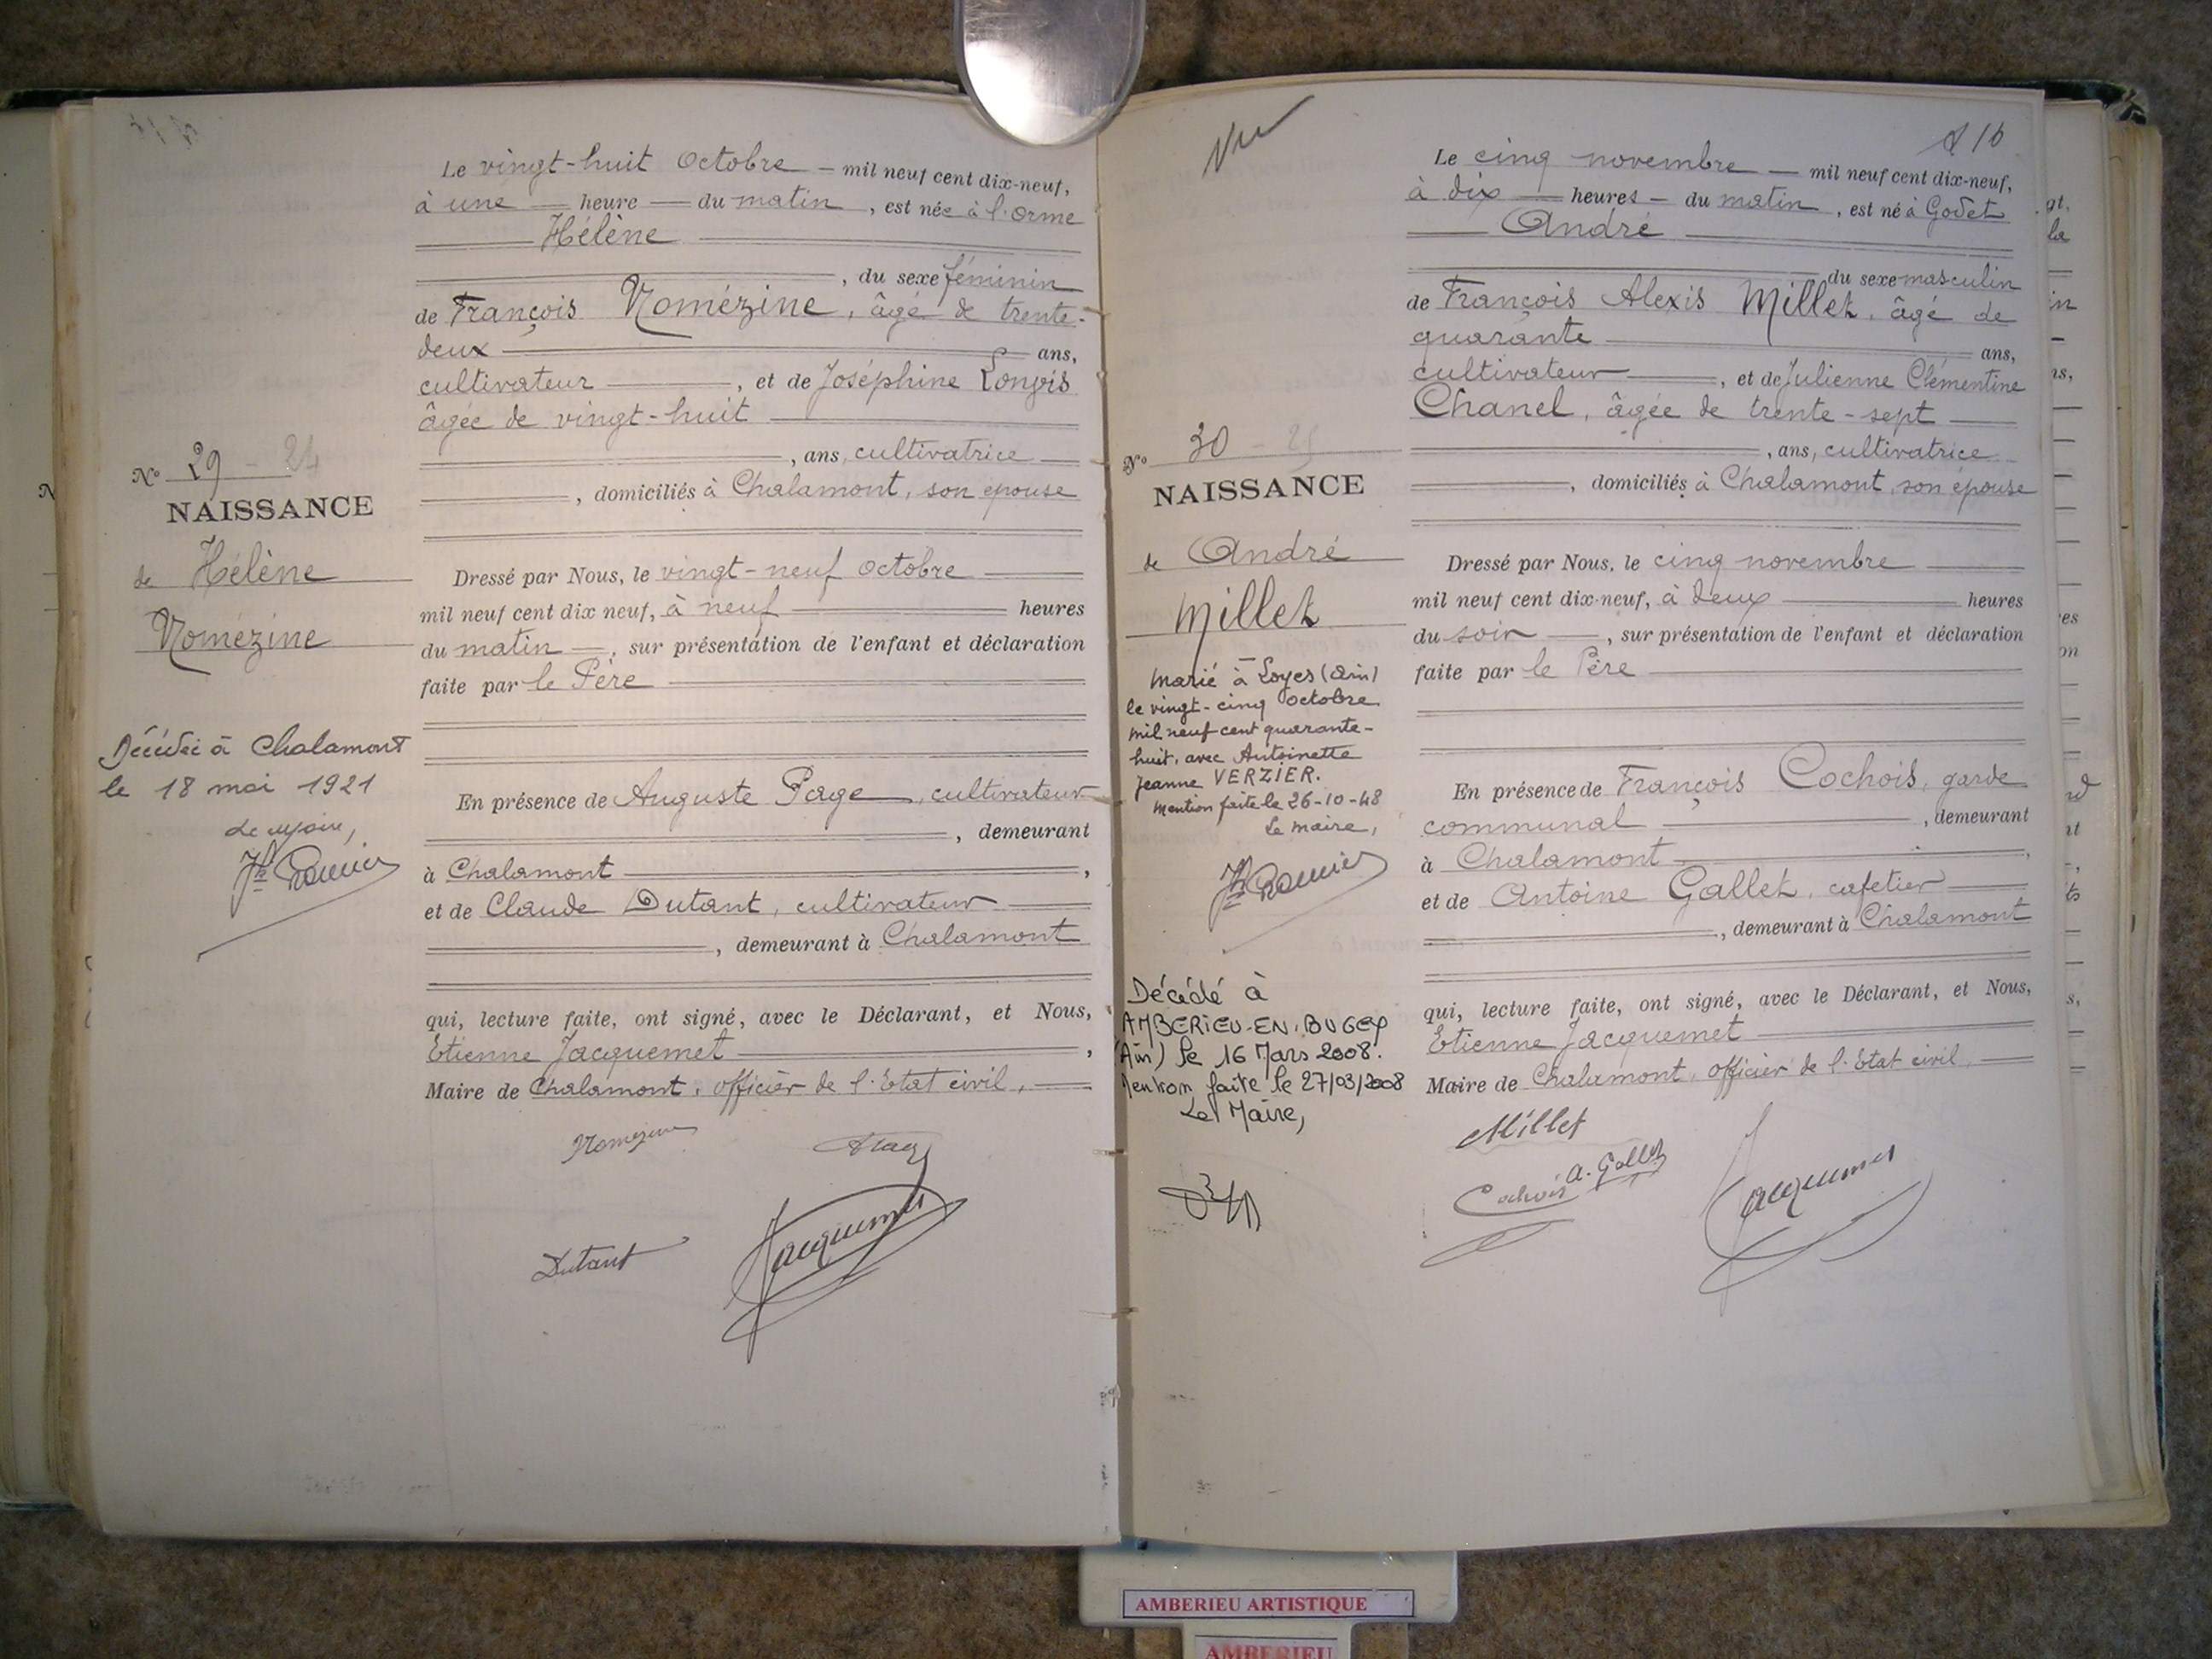 Le vingt-huit Octobre — mil neuf cent dix-neuf,
à une — heure — du matin, est née à l'Orme
Hélène
, du sexe féminin
de François Nomézine, âgé de trente-
deux ans,
cultivateur, et de Joséphine
âgée de vingt-huit
, ans, cultivatrice
, domiciliés à Chalamont, son épouse
No 29 - 24
NAISSANCE
de Hélène
Nomézine
Dressé par Nous, le vingt-neuf Octobre
mil neuf cent dix neuf, à neuf heures
du matin, sur présentation de l'enfant et déclaration
faite par le Père
Décédée à Chalamont
le 18 mai 1921
Le Maire,
En présence de Auguste Page, cultivateur
, demeurant
à Chalamont,
et de Claude Dutant, cultivateur
, demeurant à Chalamont
qui, lecture faite, ont signé, avec le Déclarant, et Nous,
Etienne Jacquemet,
Maire de Chalamont, officier de l'Etat civil,
Nomézine
Dutant
Jacquemet
Vu
Le cinq novembre — mil neuf cent dix-neuf,
à dix — heures — du matin, est né à Godet
André
du sexe masculin
de François Alexis Millet, âgé de
quarante ans,
cultivateur, et de Julienne Clémentine
Chanel, âgée de trente-sept
, ans, cultivatrice
, domiciliés à Chalamont, son épouse
No 30 - 25
NAISSANCE
de André
Millet
Dressé par Nous, le cinq novembre
mil neuf cent dix-neuf, à deux heures
du soir, sur présentation de l'enfant et déclaration
faite par le Père
Marié à Loyes (Ain)
le vingt-cinq Octobre
mil neuf cent quarante-
huit, avec Antoinette
Jeanne VERZIER.
Mention faite le 26-10-48
Le Maire,
En présence de François Cochois, garde
communal, demeurant
à Chalamont
et de Antoine Gallet, cafetier
, demeurant à Chalamont
Décédé à
AMBERIEU-EN-BUGEY
(Ain) le 16 Mars 2008.
Mention faite le 27/03/2008
Le Maire,
qui, lecture faite, ont signé, avec le Déclarant, et Nous,
Etienne Jacquemet
Maire de Chalamont, officier de l'Etat civil,
Millet
Cochois A. Gallet
Jacquemet
AMBERIEU ARTISTIQUE
AMBERIEU